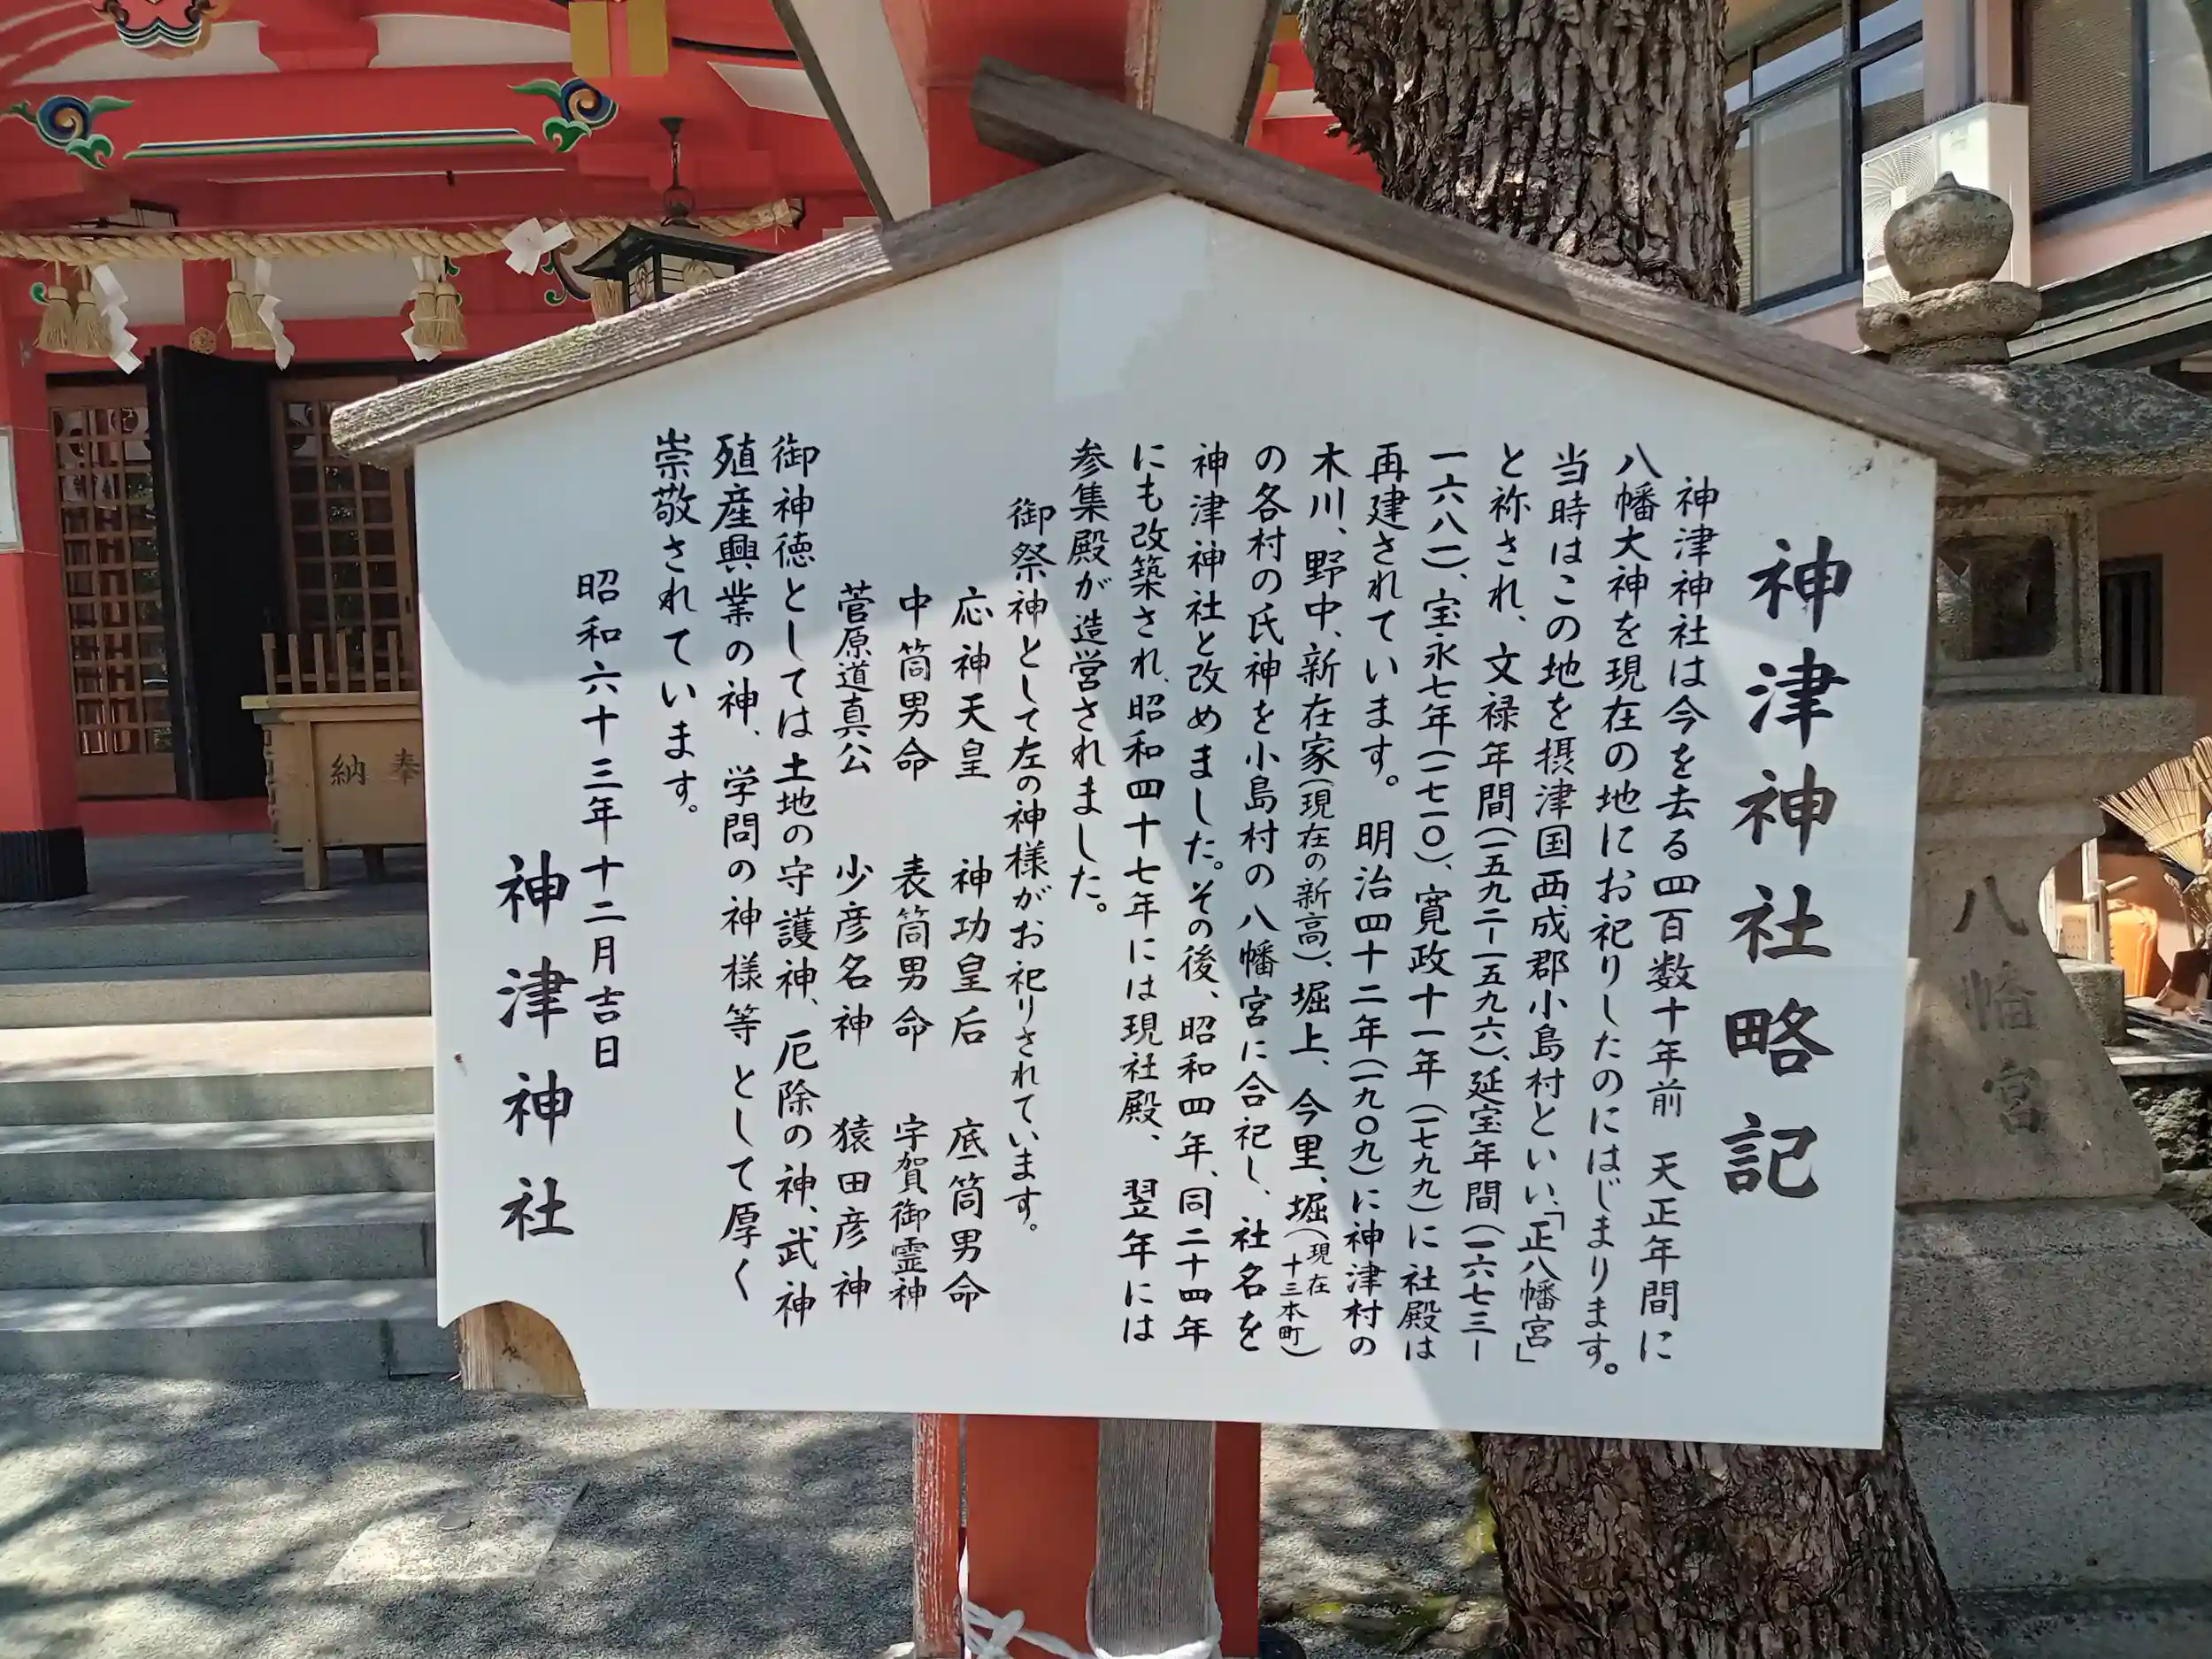 神津神社略記
神津神社は今を去る四百数十年前 天正年間に
八幡大神を現在の地にお祀りしたのにはじまります。
当時はこの地を摂津国西成郡小島村といい、「正八幡宮」
と祢され、文禄年間(一五九二ー一五九六)、延宝年間(一六七三ー
一六八一)、宝永七年(一七一〇)、寛政十一年(一七九九)に社殿は
再建されています。明治四十二年(一九〇九)に神津村の
木川、野中、新在家(現在の新高)、堀上、今里、堀(現在十三本町)
の各村の氏神を小島村の八幡宮に合祀し、社名を
神津神社と改めました。その後、昭和四年、同二十四年
にも改築され、昭和四十七年には現社殿、翌年には
参集殿が造営されました。
御祭神として左の神様がお祀りされています。
応神天皇 神功皇后 底筒男命
中筒男命 表筒男命 宇賀御霊神
菅原道真公 少彦名神 猿田彦神
御神徳としては土地の守護神、厄除の神、武神
殖産興業の神、学問の神様等として厚く
崇敬されています。
昭和六十三年十二月吉日
神津神社
納奉
八幡宮